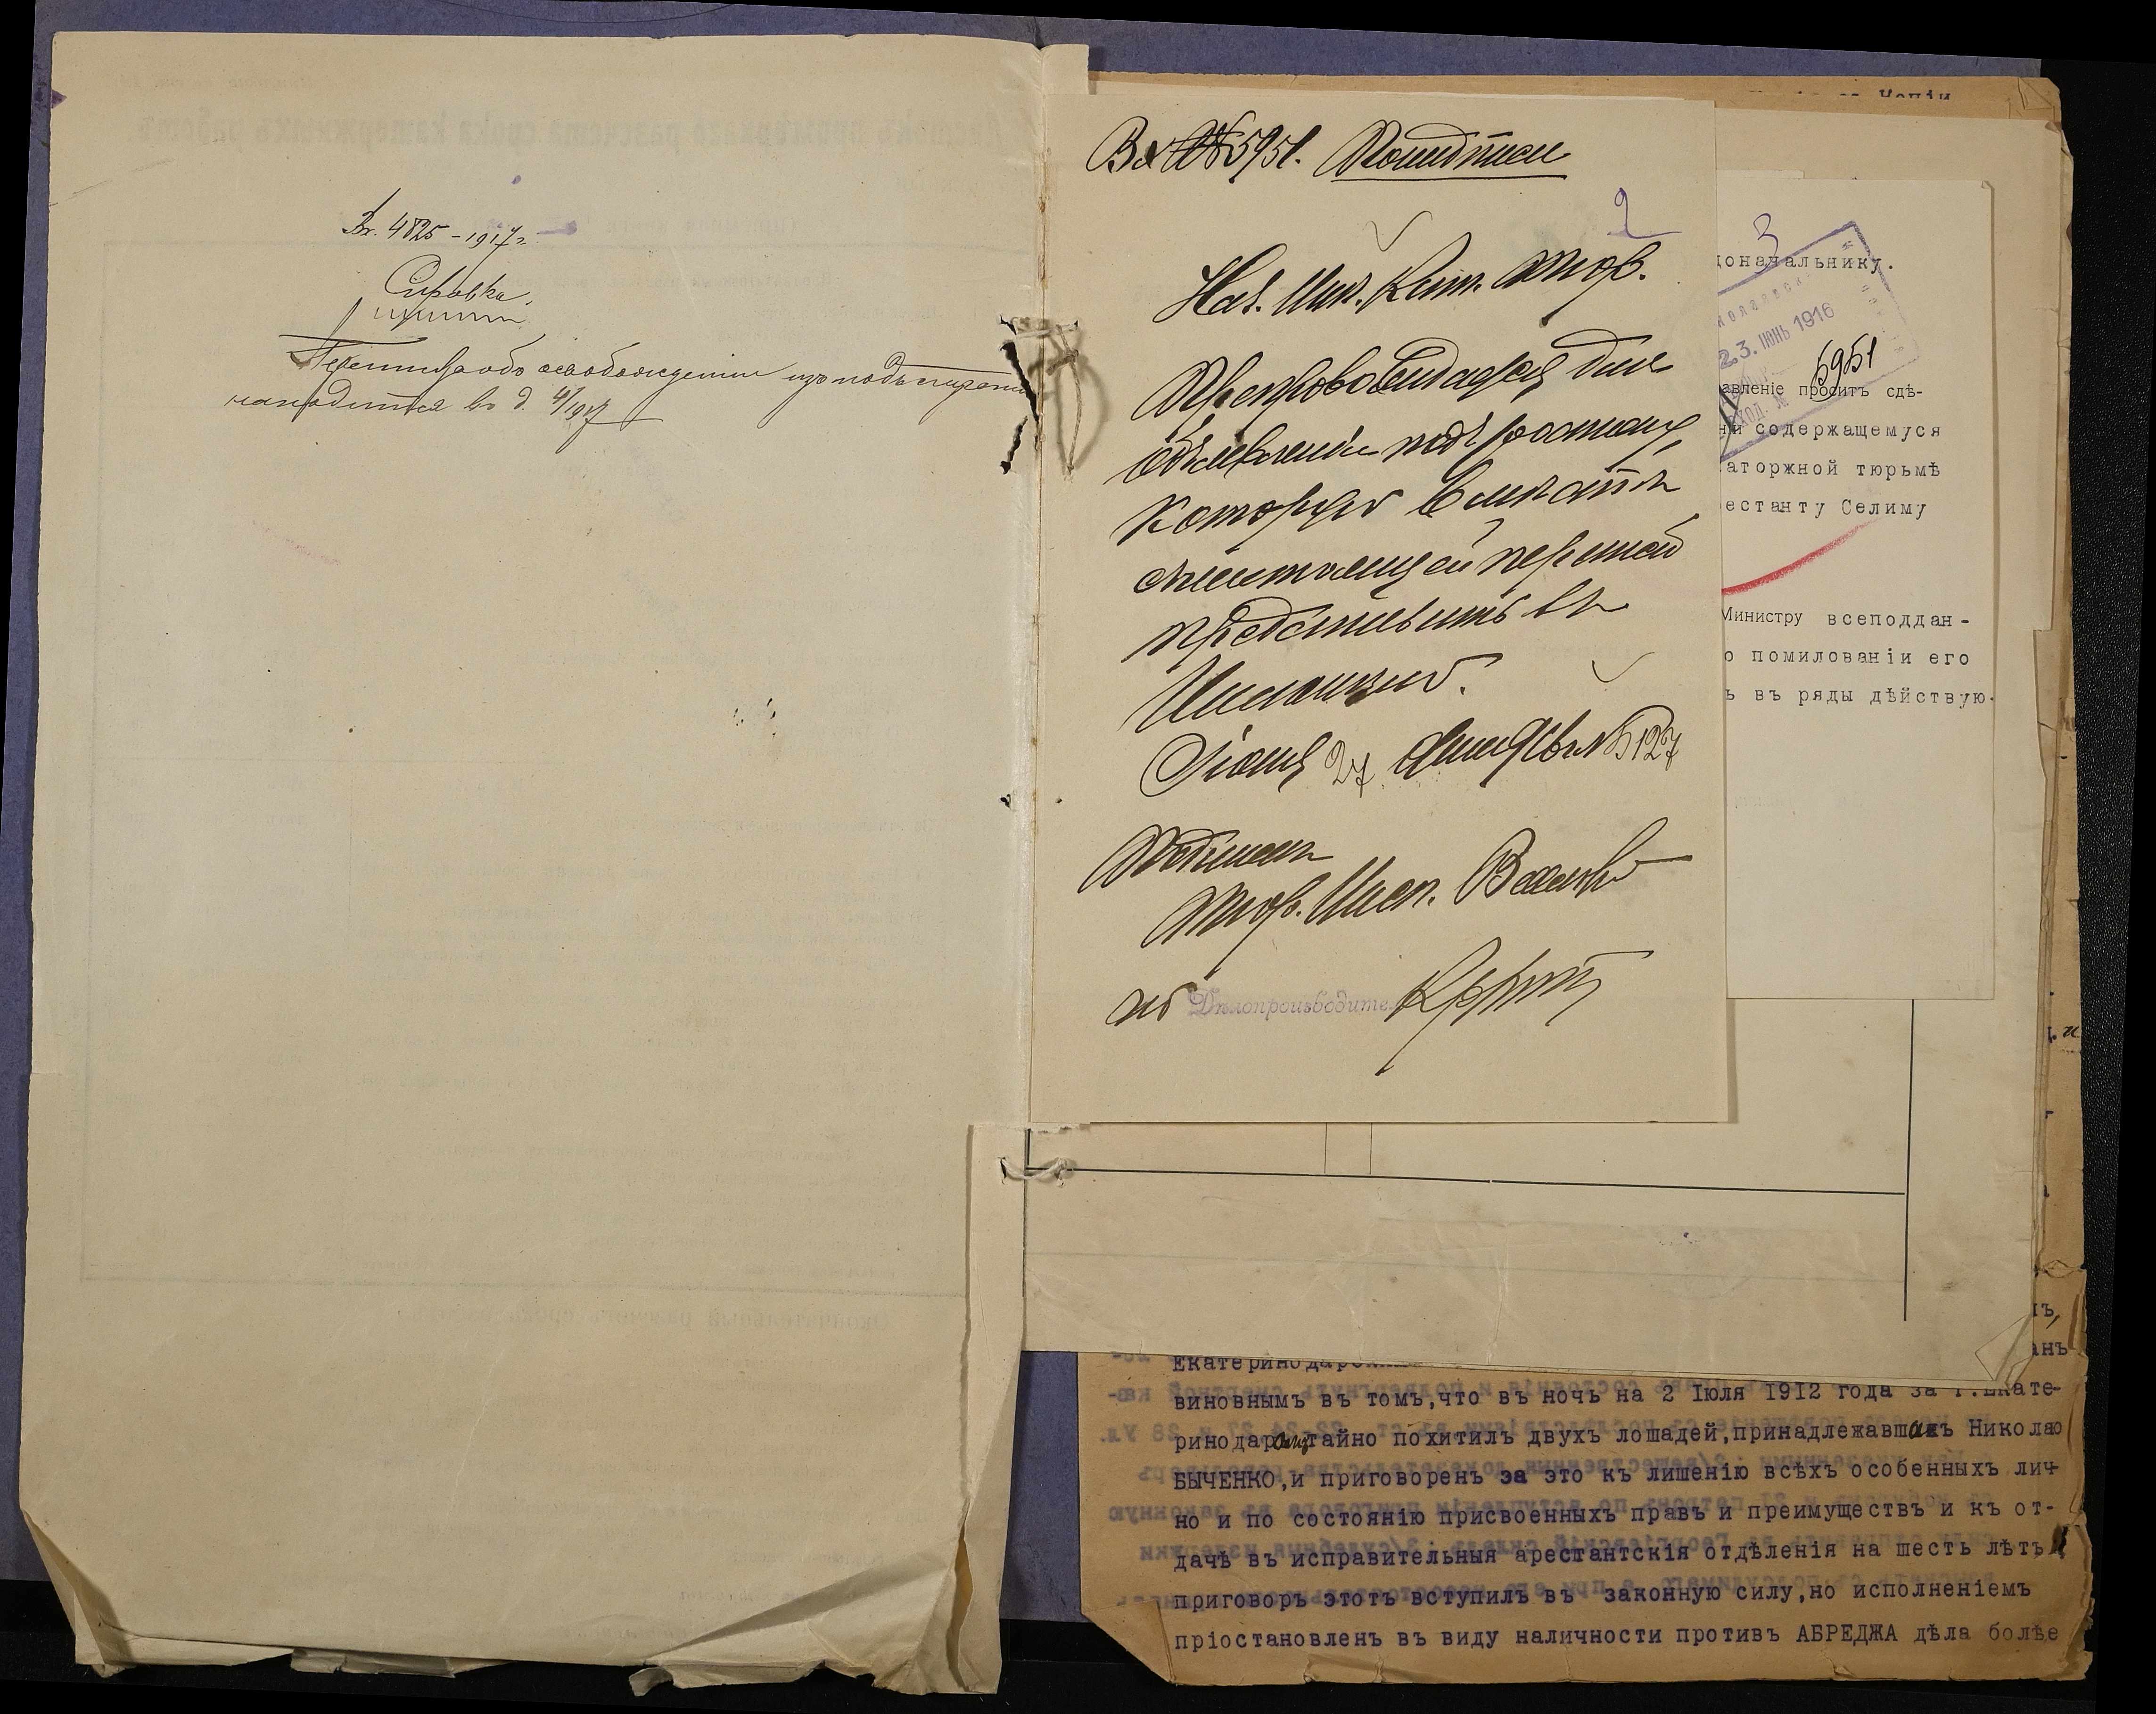 Вх. 4825 - 1917 г.
Справка.
Переписка объ освобожденіи изъ подъ стражи
находится въ д. 4/1917
Вх № 5951.
2
Нач. Ник. Кат. Тюр.
Препровождается для
объявленія подъ росписку,
которую вмѣстѣ съ
настоящей перепиской
представить въ
Инспекцію.
Іюня 27 дня 1916 г. №5127
Тюр. Инсп.
Дѣлопроизводитель
3
доначальнику.
23. ІЮНЬ 1916
5951
авленіе проситъ сдѣ-
содержащемуся
аторжной тюрьмѣ
естанту Селиму
Министру всеподдан-
о помилованіи его
ь въ ряды дѣйствую.
Екатеринодарски
виновнымъ въ томъ,что въ ночь на 2 Іюля 1912 года за г.Екате-
ринодаромъ тайно похитилъ двухъ лошадей,принадлежавшихъ Николаю
БЫЧЕНКО,и приговоренъ за это къ лишенію всѣхъ особенныхъ лич-
но и по состоянію присвоенныхъ правъ и преимуществъ и къ от-
дачѣ въ исправительныя арестантскія отдѣленія на шесть лѣтъ
приговоръ этотъ вступилъ въ законную силу,но исполненіемъ
пріостановленъ въ виду наличности противъ АБРЕДЖА дѣла болѣе